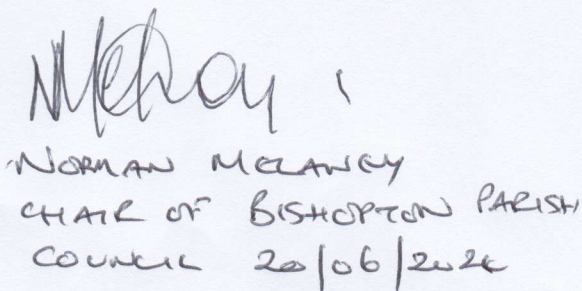 NORMAN MELANEY
CHAIR OF BISHOPTON PARISH
COUNCIL 20/06/2024